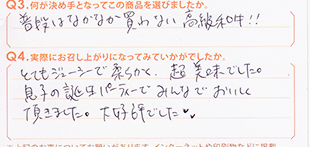 Q3.何が決め手となってこの商品を選びましたか。
普段はなかなか買わない高級和牛!!
Q4.実際にお召し上がりになってみていかがでしたか。
とてもジューシーで柔らかく、超美味でした。
息子の誕生パーティーでみんなでおいしく
頂きました。大好評でした♥♥